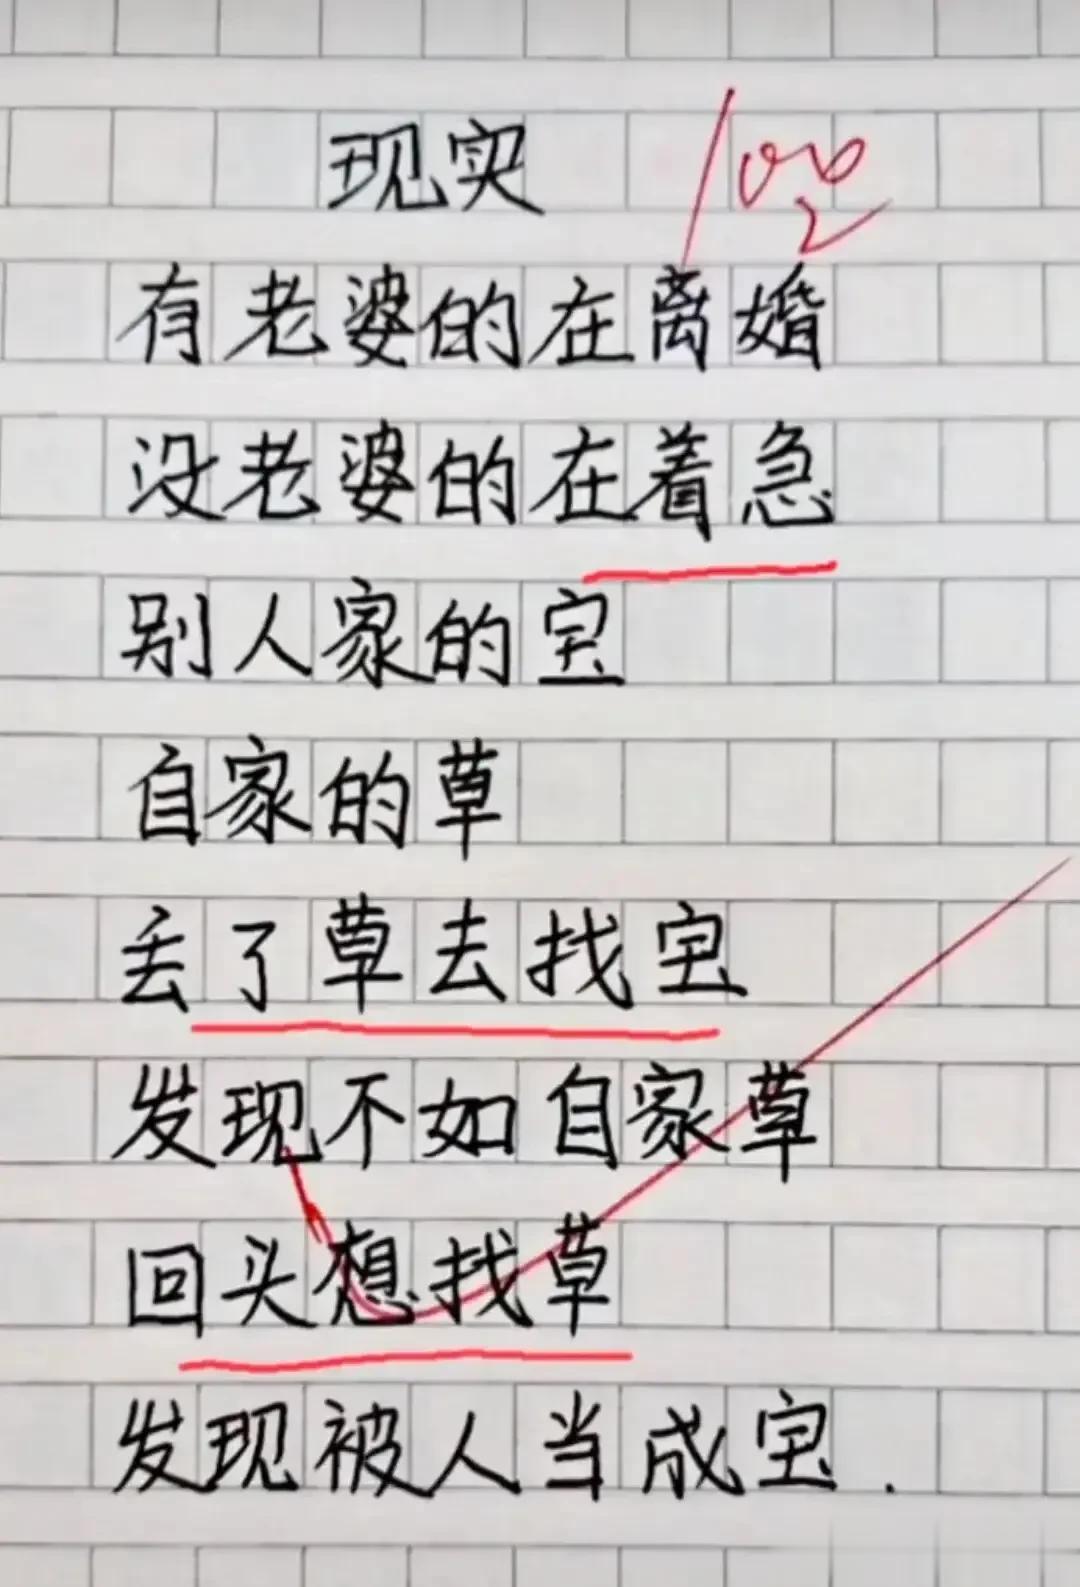 现实
100
有老婆的在离婚
没老婆的在着急
别人家的宝
自家的草
丢了草去找宝
发现不如自家草
回头想找草
发现被人当成宝.